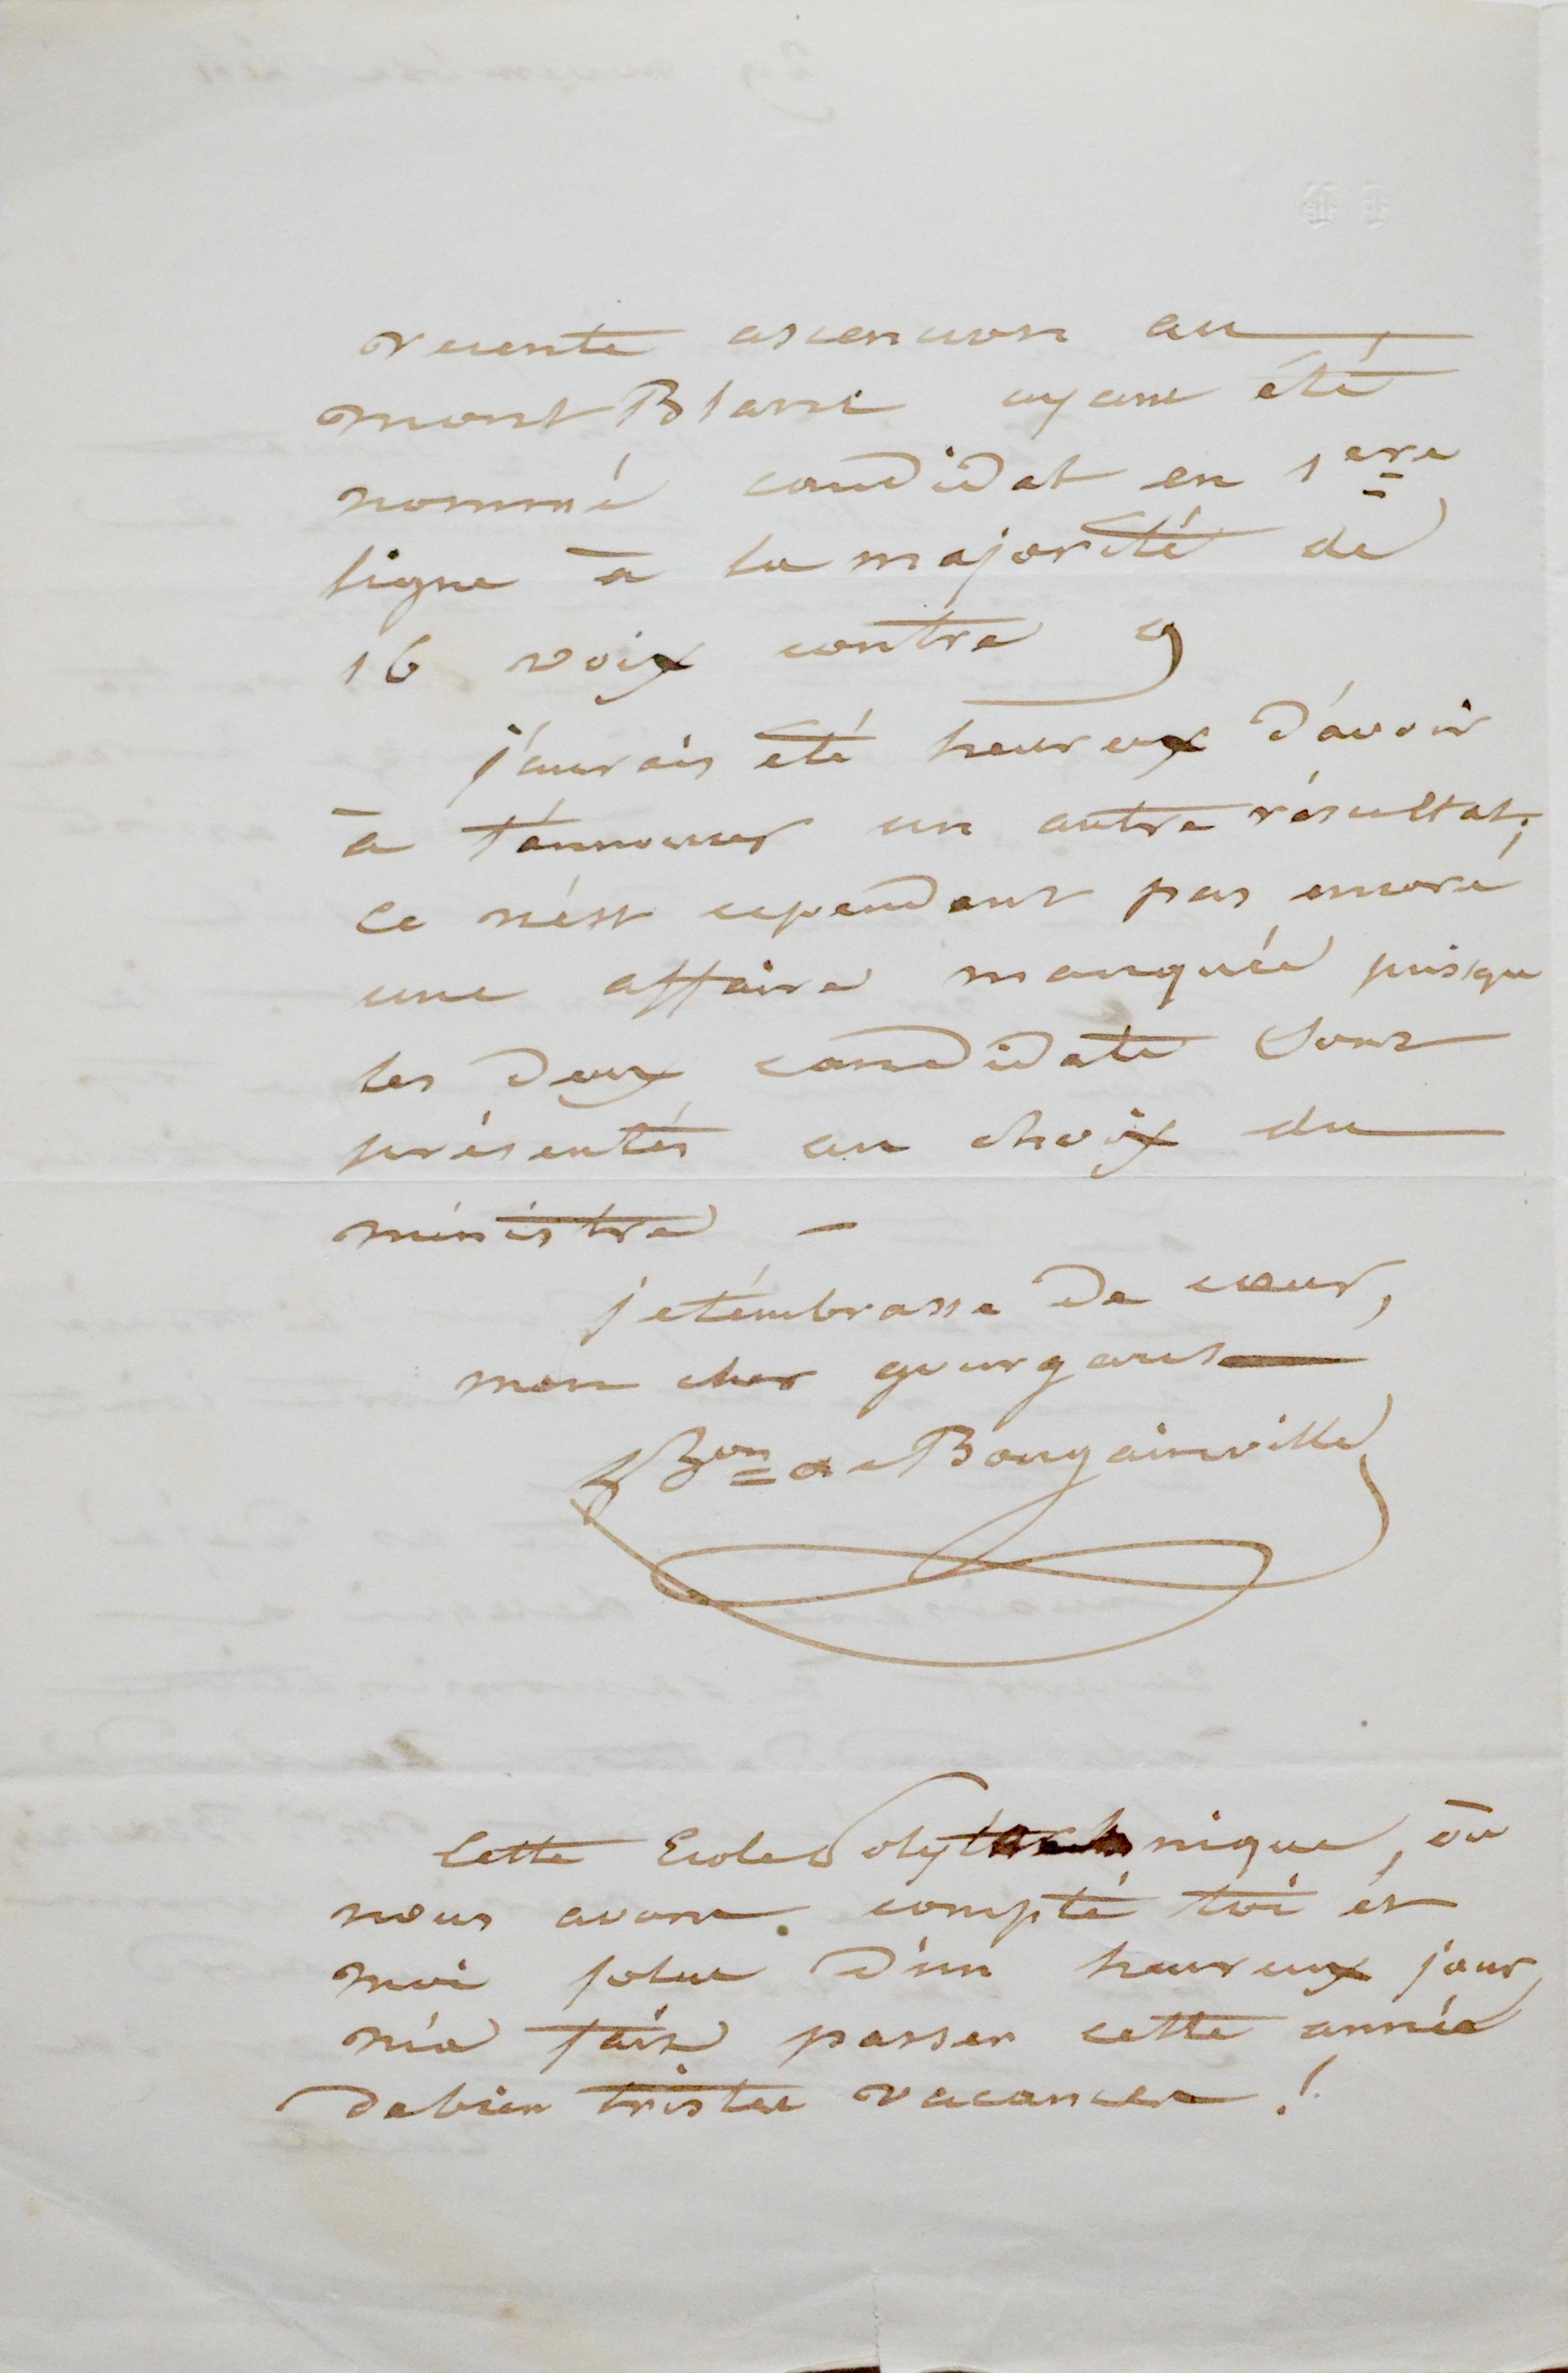 recente ascension au
mont Blanc ayant été
nommé candidat en 1ere
ligne à la majorité de
16 voix contre 9
j'aurais été heureux d'avoir
à t'annoncer un autre résultat;
ce n'est cependant pas encore
une affaire manquée puisque
les deux candidats sont
présentés au choix du
ministre -
je t'embrasse de cœur,
mon cher gourgaud
Bon de Bougainville
Cette Ecole Polytechnique, où
nous avons compté toi et
moi plus d'un heureux jour,
m'a fait passer cette année
de bien tristes vacances !